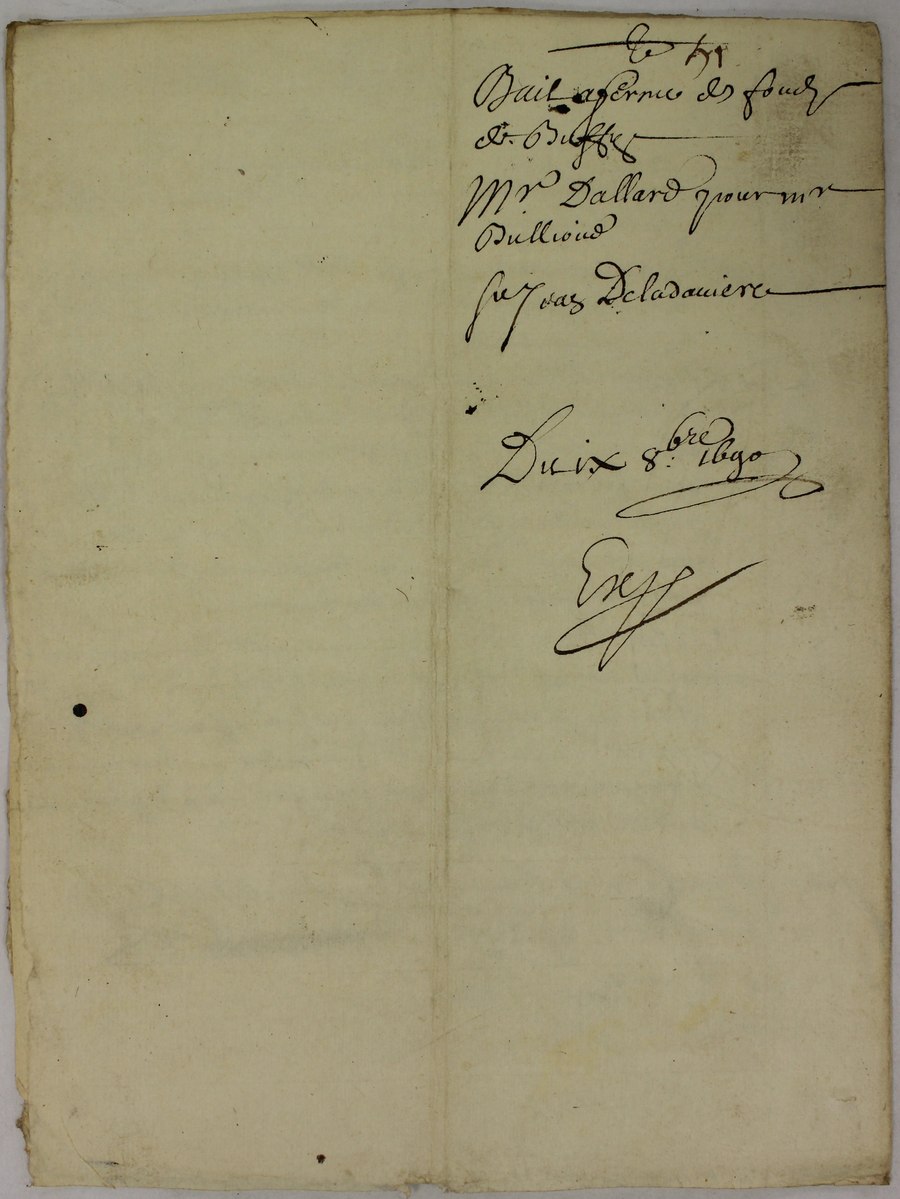 Bail a ferme des fonds
de Buffes
Mr Dallard pour mr
Bullioud
Sr Jean Deladouiere
Du ix 8.bre 1690